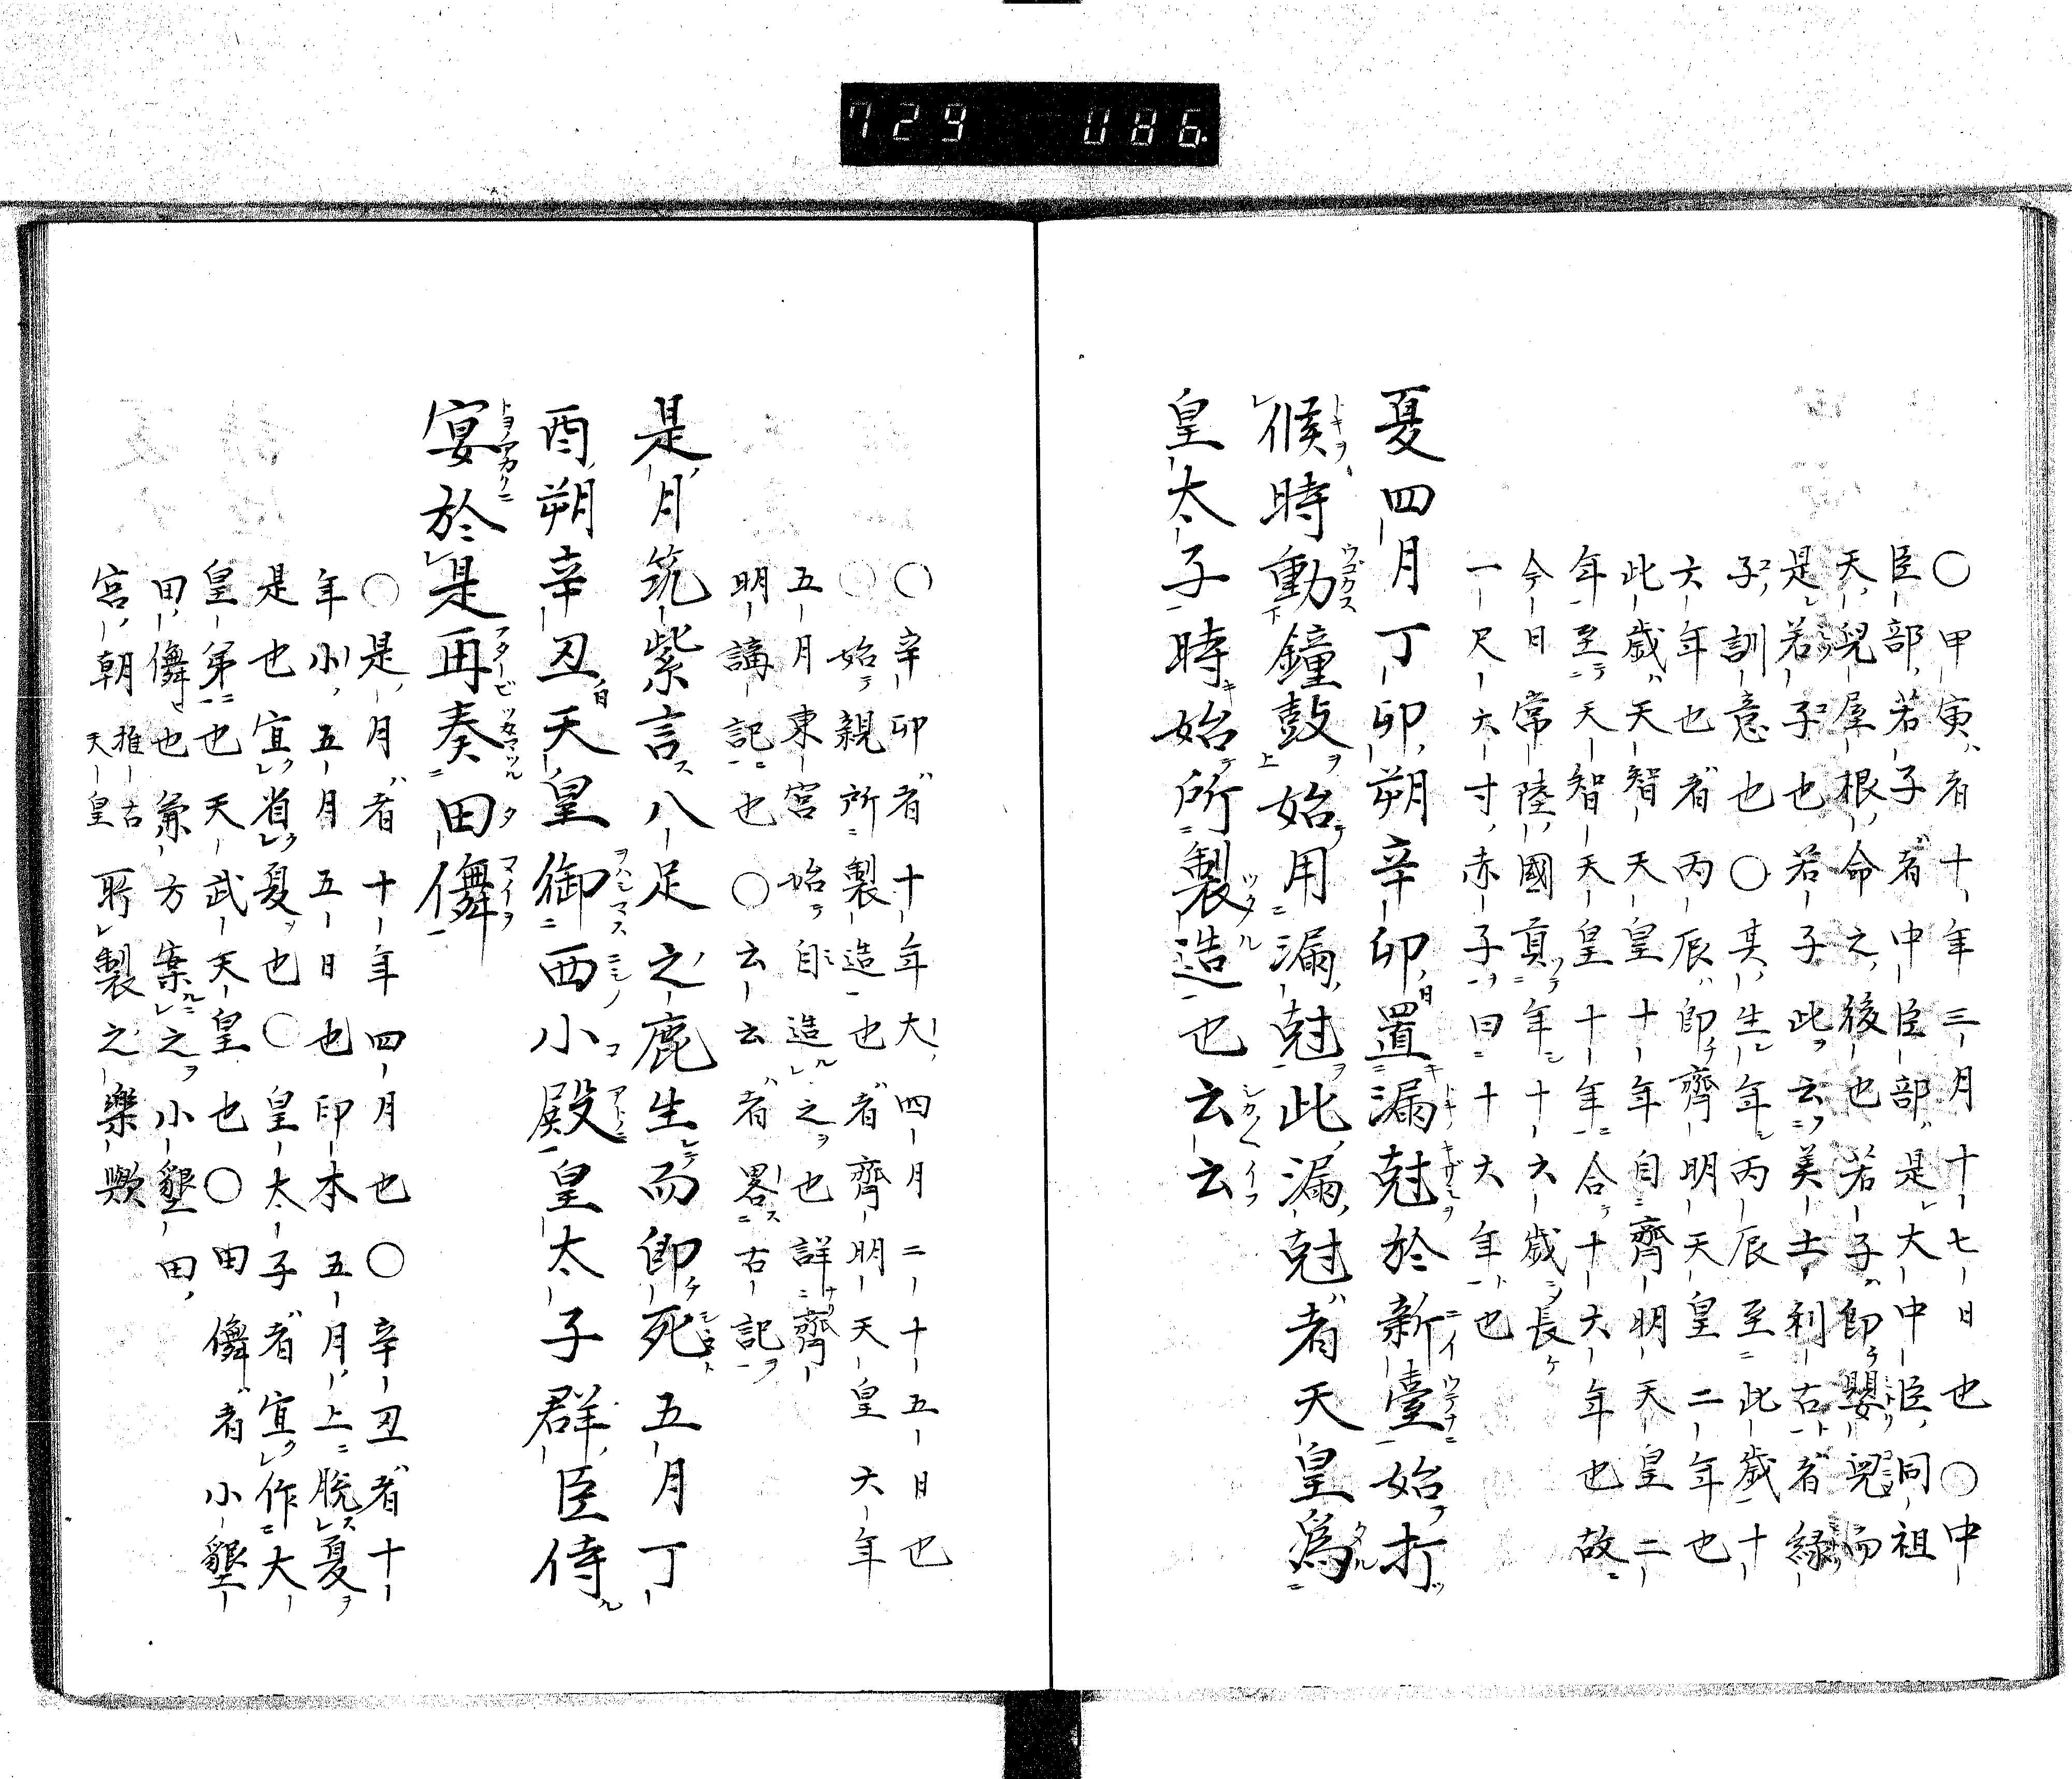 729 086
○甲寅者十年三月十七日也○中
臣部若子者中臣部是大中臣同祖
天兒屋根命之後也若子即嬰兒而
是若子也若子此云美士利古者緑
子訓意也○其生年丙辰至此歳十
六年也者丙辰即齊明天皇二年也
此歳天智天皇十年自齊明天皇二
年至天智天皇十年合十六年也故
今日常陸國貢年十六歳長
一尺六寸赤子曰十六年也
夏四月丁卯朔辛卯日置漏尅於新臺始打
候時動鐘鼓始用漏尅此漏尅者天皇爲
皇太子時始所製造也云云
○辛卯者十年大四月二十五日也
○始親所製造也者齊明天皇六年
五月東宮始自造之也詳齊
明講記也○云云者畧右記
是月筑紫言八足之鹿生而即死五月丁
酉朔辛丑日天皇御西小殿皇太子群臣侍
宴於是再奏田儛
○是月者十年四月也○辛丑者十
年小五月五日也印本五月上脱夏
是也宜省夏也○皇太子者宜作大
皇弟也天武天皇也○田儛者小墾
田儛也兼方案之小墾田
宮朝推古天皇所製之樂歟